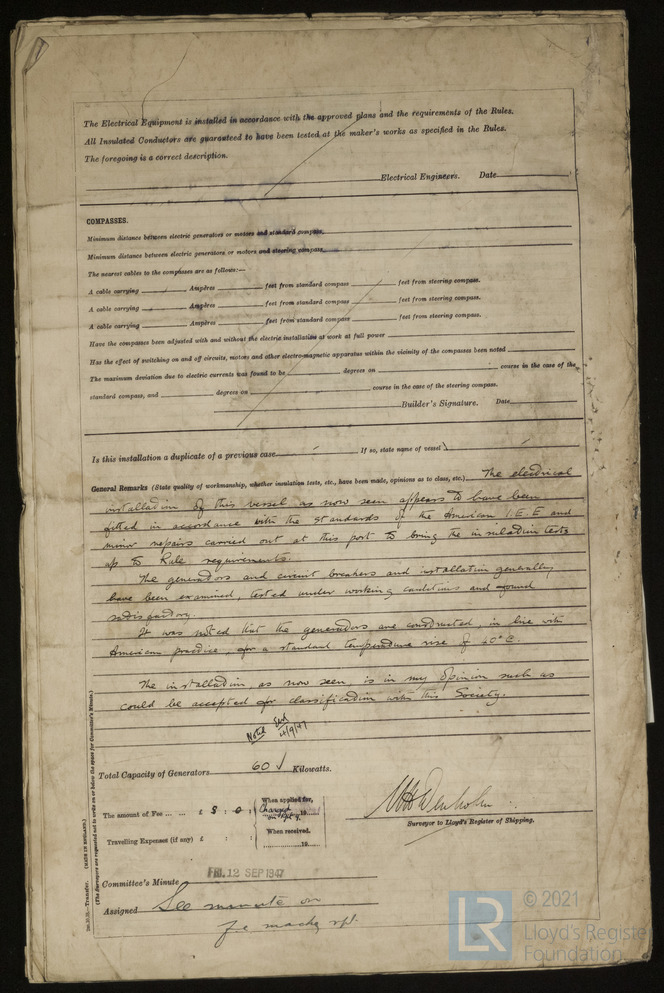 The Electrical Equipment is installed in accordance with the approved plans and the requirements of the Rules.
All Insulated Conductors are guaranteed to have been tested at the maker's works as specified in the Rules.
The foregoing is a correct description.
Electrical Engineers. Date
COMPASSES.
Minimum distance between electric generators or motors and standard compass
Minimum distance between electric generators or motors and steering compass
The nearest cables to the compasses are as follows:—
A cable carrying Ampères feet from standard compass feet from steering compass.
A cable carrying Ampères feet from standard compass feet from steering compass.
A cable carrying Ampères feet from standard compass feet from steering compass.
Have the compasses been adjusted with and without the electric installation at work at full power
Has the effect of switching on and off circuits, motors and other electro-magnetic apparatus within the vicinity of the compasses been noted
The maximum deviation due to electric currents was found to be degrees on course in the case of the
standard compass, and degrees on course in the case of the steering compass.
Builder's Signature. Date
Is this installation a duplicate of a previous case If so, state name of vessel
General Remarks (State quality of workmanship, whether insulation tests, etc., have been made, opinions as to class, etc.) The electrical
installation of this vessel as now seen appears to have been
fitted in accordance with the standards of the American I.E.E and
minor repairs carried out at this port to bring the insulation tests
up to Rule requirements.
The generators and circuit breakers and installation generally
have been examined, tested under working conditions and found
satisfactory.
It was noted that the generators are constructed, in line with
American practice, for a standard temperature rise of 40° C.
The installation, as now seen is in my opinion such as
could be accepted for classification with this Society.
Noted
4/9/47
Total Capacity of Generators 60 Kilowatts.
The amount of Fee ... ... £ 5 : 0 : When applied for,
Charged
19
Travelling Expenses (if any) £ : : When received.
19
Surveyor to Lloyd's Register of Shipping.
Committee's Minute FRI. 12 SEP 1947
Assigned See minute on
F.E. machy rpt.
Transfer. (MADE IN ENGLAND.)
(The Surveyors are requested not to write on or below the space for Committee's Minute.)
LR
© 2021
Lloyd's Register
Foundation